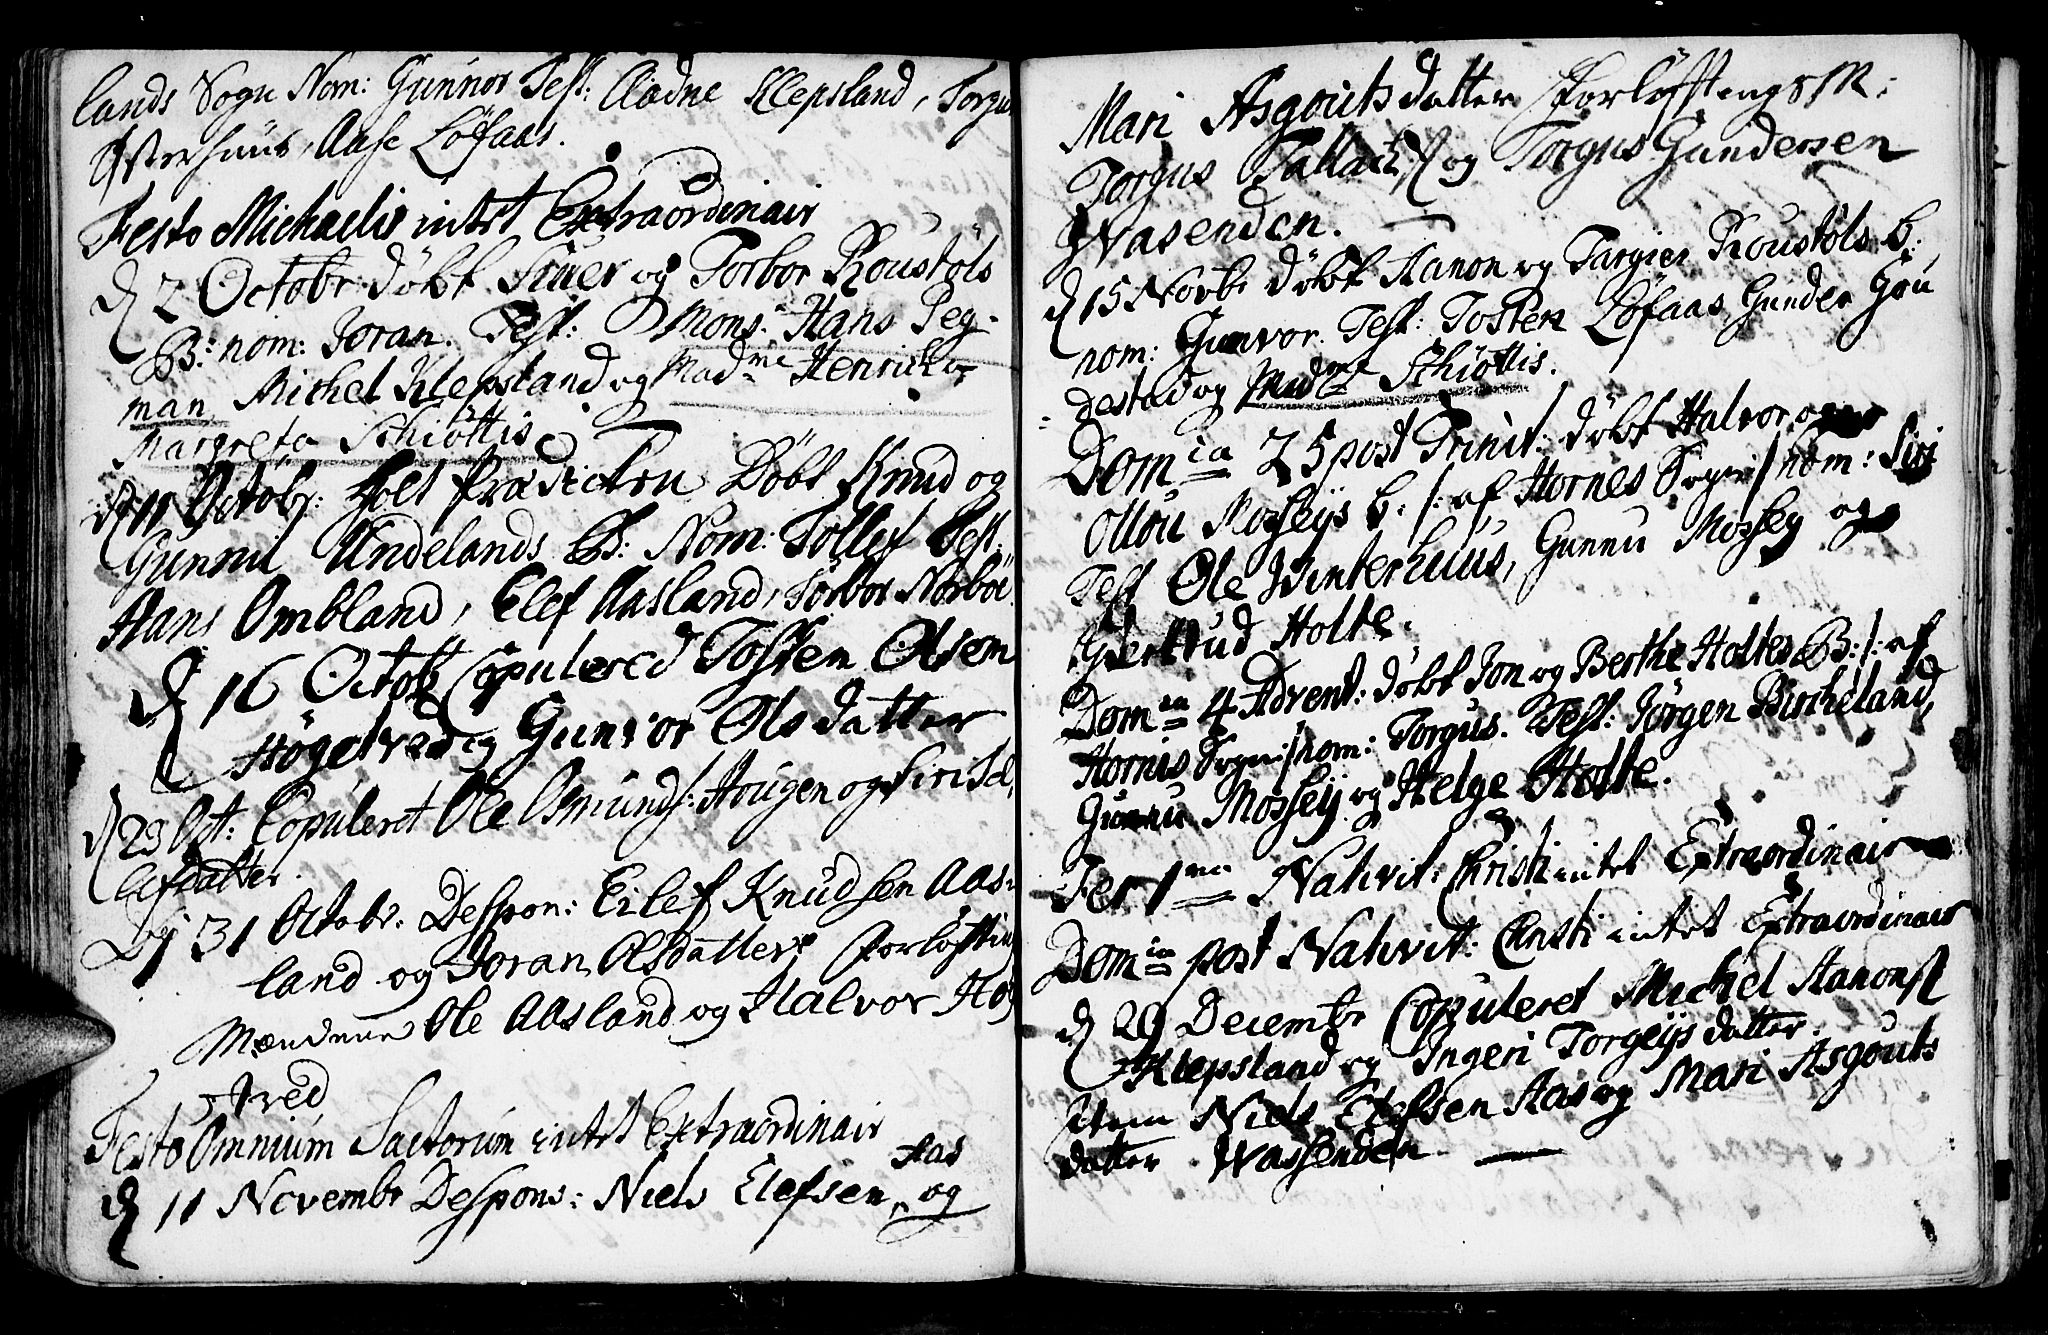 lands Sogn Nom: Gunnor Test: Aadne Klepsland, Torgus
Østerhuus, Aase Løfaas.
Festo Michaelis intet Extraordinair
d 2 Octobr: döbt Siuer og Torbor Roustöls
B: nom: Joran. Test: Mons. Hans Seg-
man Michel Klepsland og Madme Henricha
Margreta Schiöttis
d 11 Octobr: holt Prædicken Döbt Knud og
Gunnil Undelands B: Nom: Tollef Test:
Hans Ombland, Elef Aasland, Torbor Norböe
d 16 Octobr Copulered Tosten Olsen
Högelved og Gunvor Olsdatter
d 23 Oct: Copuleret Ole Osmunds: Hougen og Siri Sd.
Elefsdatter.
Dj 31 Octobr: Despon: Eilef Knudsen Aas-
land og Joran Olsdatter forløftnings
Mændene Ole Aasland og Halvor Høg
elved
Festo Omnium Sactorum intet Extraordinair
d 11 Novembr Despons: Niels Elefsen Aas og
Mari Asgoutsdatter forløftnings M:
Torgus Tallacks: og Torgus Gundersen
Wasenden.
d 15 Novbr döbt Aanon og Targier Roustöls B:
nom: Gunvor. Test: Tosten Löfaas, Gunder Gru
destad og Madme Schiöttis.
Domca 25 post Trinit: döbt Halvor og
Ollou Mosseys B: /: af Hornes Sogn :/ nom: Siri
Test Ole Winterhuus, Gunnu Mossey og
Giertrud Holte.
Domca 4 Advent: döbt Jon og Berthe Holtes B: /: af
Hornes Sogn :/ nom: Torgus. Test: Jörgen Birkeland,
Gunnu Mossey og Helge Holte.
Fer 1ma Nativit: Christi intet Extraordinair
Domca post Nativit: Christi intet Extraordinair
d 29 Decembr Copuleret Michel Aanons
Klepsland og Ingeri Torgeysdatter.
Item Niels Elefsen Aas og Mari Asgouts
datter Wassenden